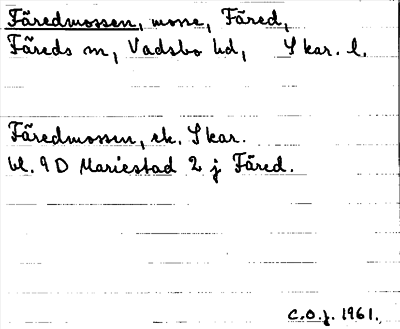 Färedmossen, mosse, Färed,
Färeds sn, Vadsbo hd, Skar. l.
Färedmossen, ek. Skar.
bl. 9D Mariestad 2 j Färed.
C.O.J. 1961.